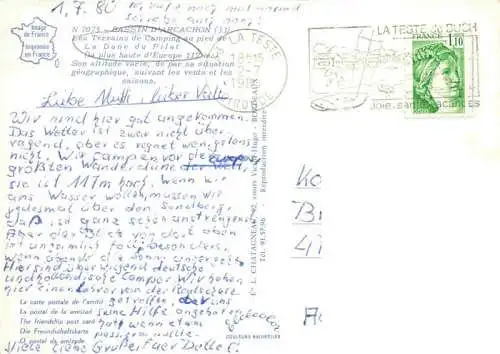 1.7.80
Image
de France
Imprimée
en France
N 7073 - BASSIN D'ARCACHON (33)
Les Terrains de Camping au pied de
La Dune du Pilat
la plus haute d'Europe 117 m
Son altitude varie, de par sa situation
géographique, suivant les vents et les
saisons.
LA TESTE
GIRONDE
LA TESTE DU BUCH
Joie-santé vacances
FRANCE
1,10
Liebe Mutti, lieber Vati!
Wir sind hier gut angekommen.
Das Wetter ist zwar nicht über-
ragend, aber es regnet wenigstens
nicht. Wir campen vor der europas
größten Wanderdüne der Welt,
sie ist 117m hoch. Wenn wir
ans Wasser wollen, müssen wir
jedesmal über den Sandberg.
Daß ist ganz schön anstrengend.
Aber der Blick von dort oben
ist unheimlich toll, besonders,
wenn abends die Sonne untergeht.
Hier sind überwiegend deutsche
und holländische Camper. Wir haben
hier einen Lehrer von der Realschule
getroffen, der uns
seine Hilfe angeboten
hat wenn etwas
passieren sollte.
Viele liebe Grüße Euer Detlef
La carte postale de l'amitié
La postal de la amistad
The friendship post card
Die Freundschaftskarte
O postal da amizade
COULEURS NATURELLES
P. L. CHATAGNEAU, 92, cours Victor-Hugo - BORDEAUX
Tél. 91.57.96 Reproduction interdite